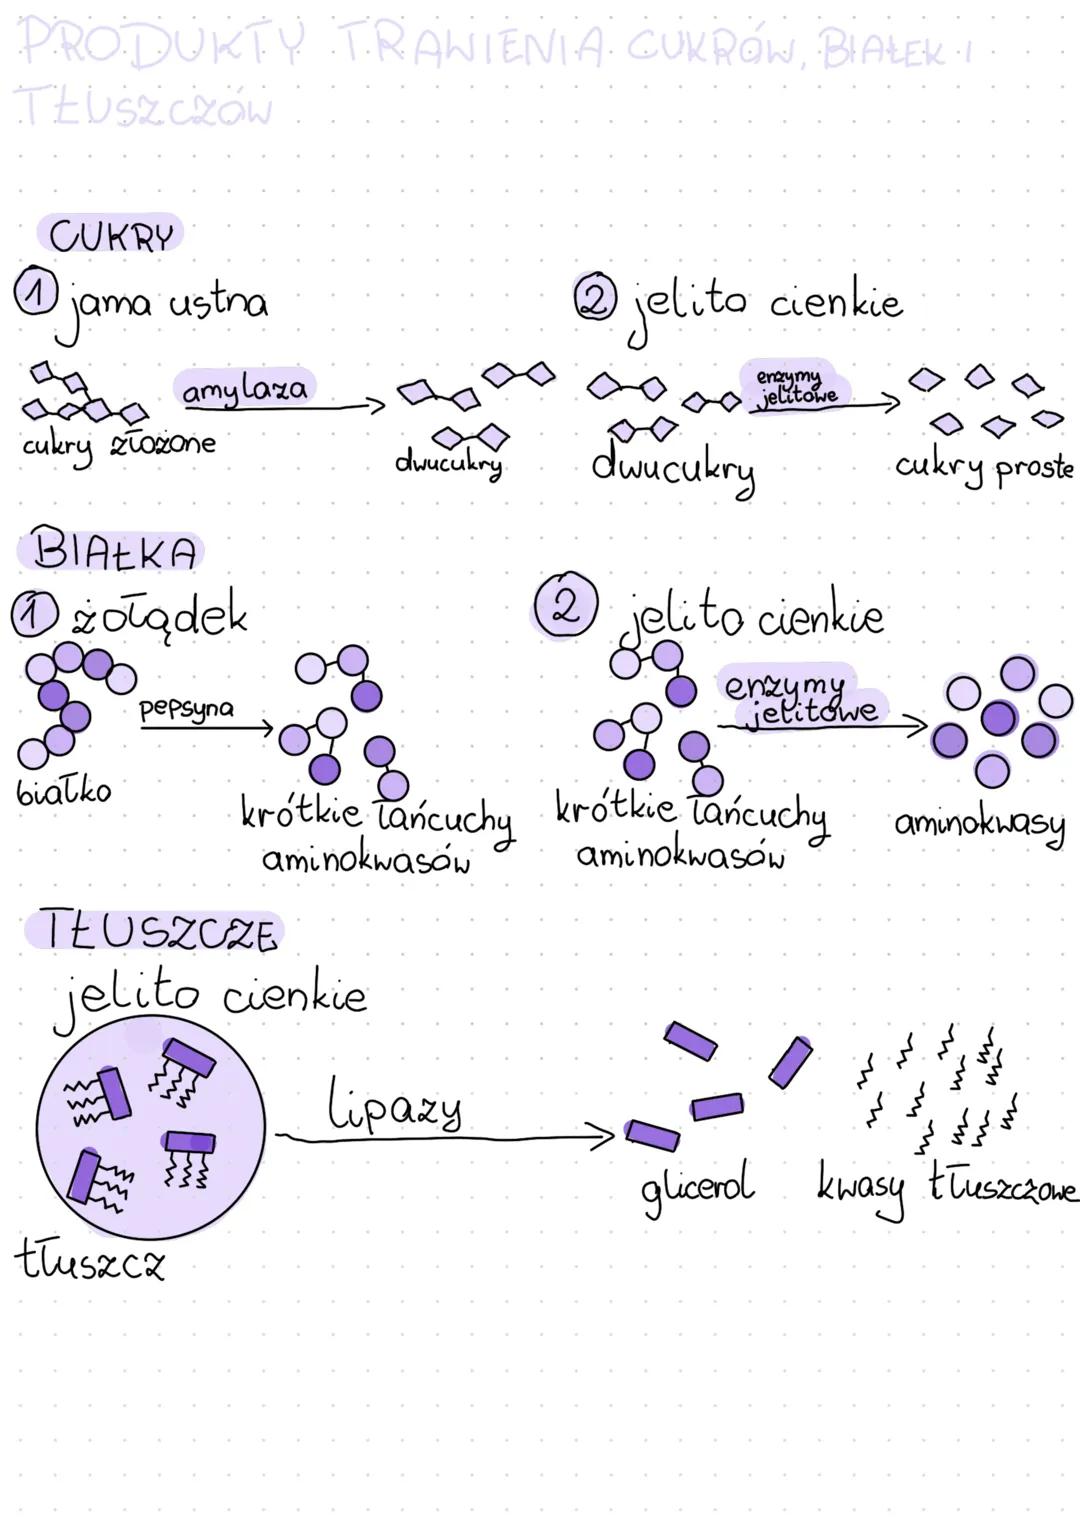 PRODUKTY TRAWIENIA CUKRÓW, BIAŁEK I
TŁUSZCZÓW
CUKRY
1 jama ustna
2 jelito cienkie
amylaza
enzymy
jelitowe
cukry złożone
dwucukry
dwucukry
cukry proste
BIAŁKA
1 żołądek
2 jelito cienkie
pepsyna
enzymy
jelitowe
białko
krótkie łańcuchy
aminokwasów
krótkie łańcuchy
aminokwasów
aminokwasy
TŁUSZCZE
jelito cienkie
lipazy
glicerol
kwasy tłuszczowe
tłuszcz